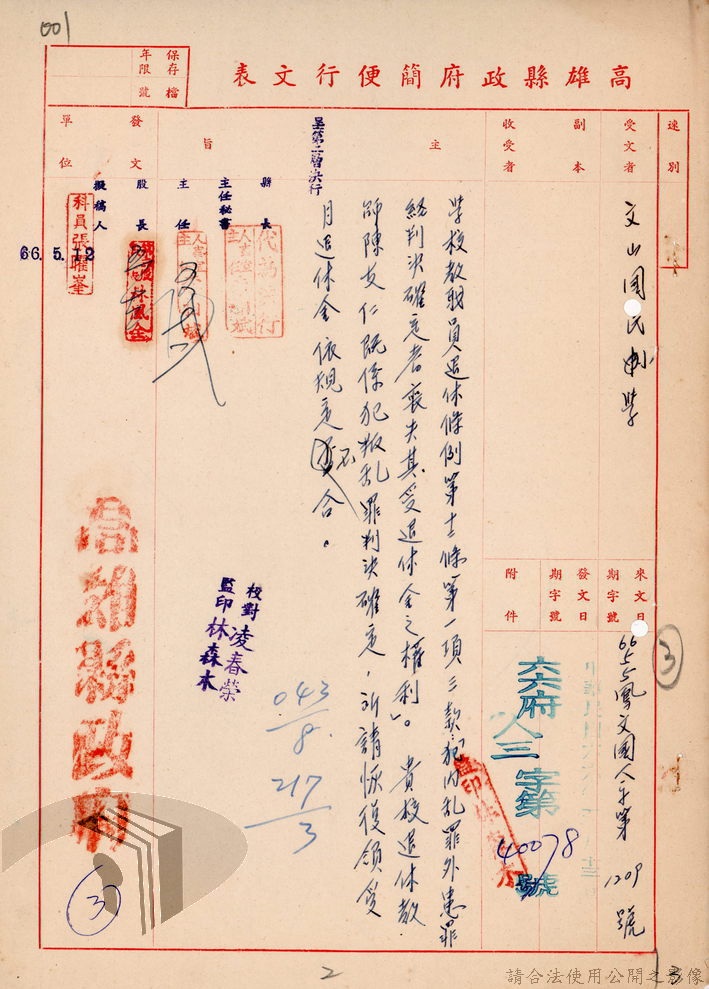 001
高雄縣政府簡便行文表
保存年限
檔號
速別
受文者
文山國民中學
副本收受者
來文日期字號
66 5 5鳳文國人字第1209號
發文日期字號
六六府人三字第40078號
附件
主旨
學校教職員退休條例第十二條第一項三款「犯內乱罪外患罪
經判決確定者喪失其受退休金之權利」。貴校退休教
師陳友仁既係犯叛乱罪判決確定,所請恢復領受
月退休金依規定不合。
呈第二層決行
縣長
主任秘書
主任
股長
擬稿人
發文單位
代為決行
科員張曜峯
66. 5. 12
林鳳全
校對凌春榮
監印林森木
043/8
217/3
高雄縣政府
3
3
2
3
請合法使用公開之影像